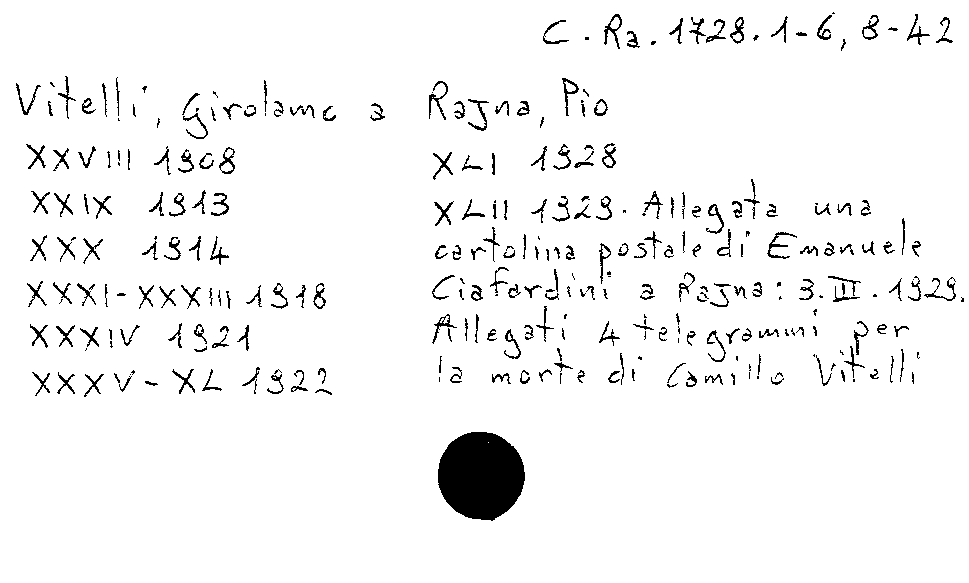 C. Ra. 1728. 1-6, 8-42
Vitelli, Girolamo a Rajna, Pio
XXVIII 1908
XXIX 1913
XXX 1914
XXXI-XXXIII 1918
XXXIV 1921
XXXV-XL 1922
XLI 1928
XLII 1929. Allegata una
cartolina postale di Emanuele
Ciafardini a Rajna: 3.III.1929.
Allegati 4 telegrammi per
la morte di Camillo Vitelli